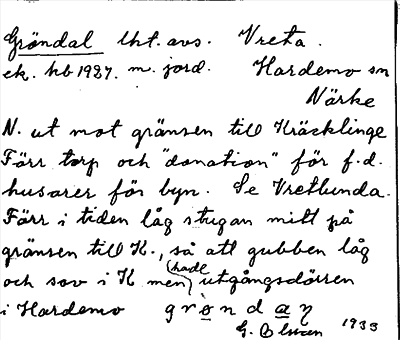 Gröndal lht. avs. Vreta.
ek. kb 1927. m. jord. Hardemo sn
Närke
N. ut mot gränsen till Kräcklinge
Förr torp och "donation" för f.d.
husarer för byn. Se Vretlunda.
Förr i tiden låg stugan mitt på
gränsen till K., så att gubben låg
och sov i K men (hade) utgångsdörren
i Hardemo grøndaŋ
G. 1933